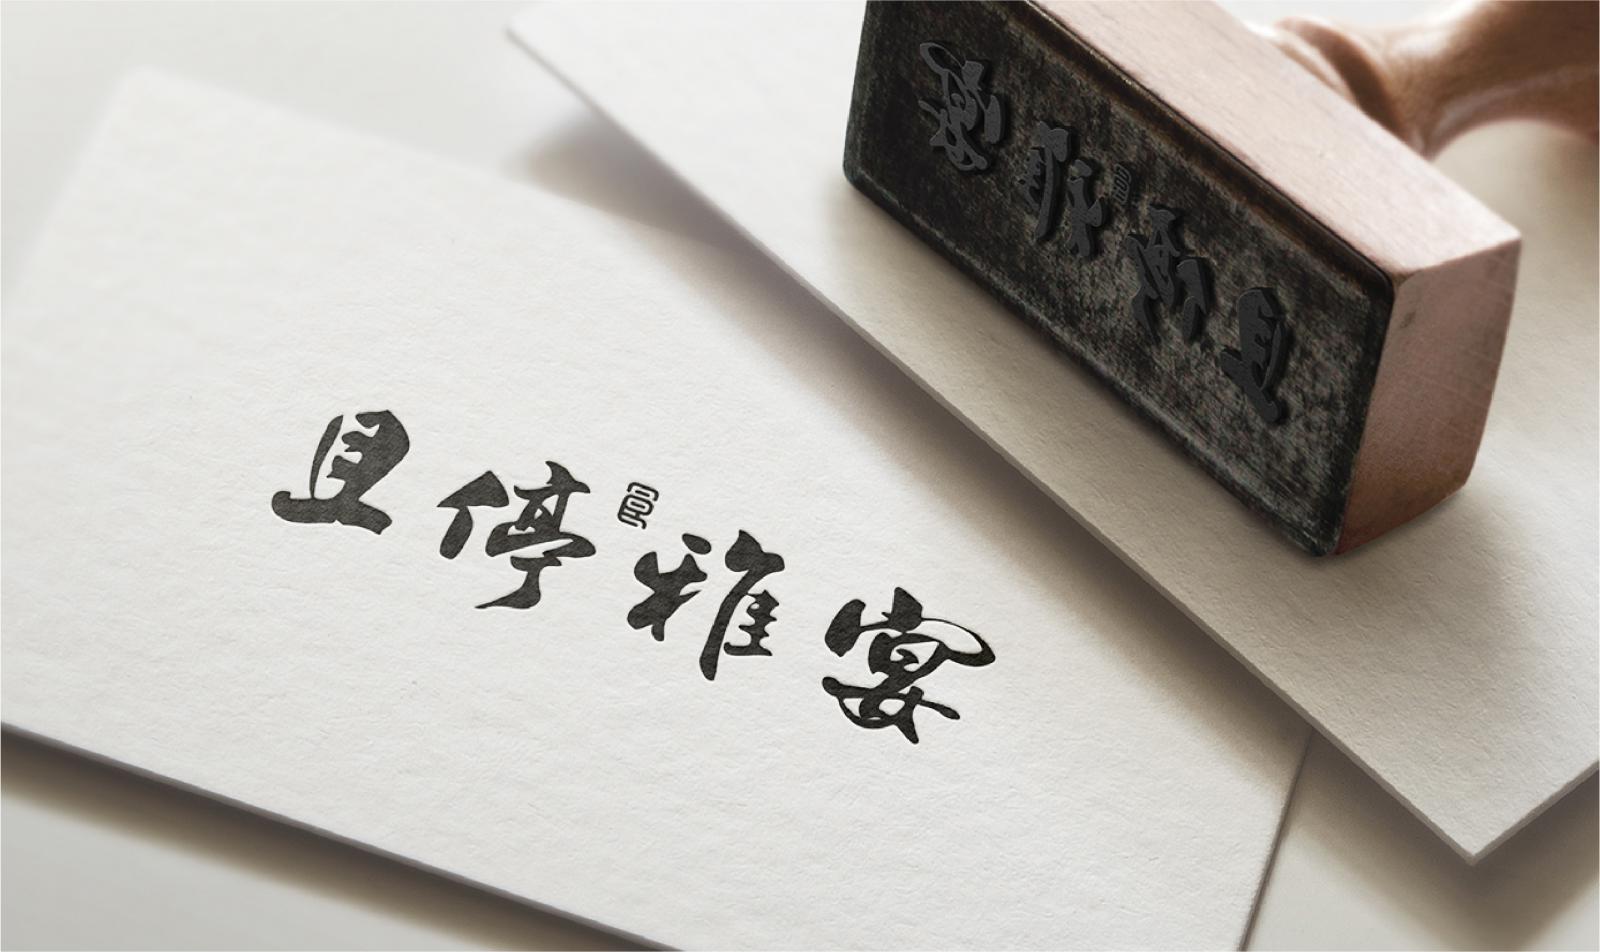 且停雅宴